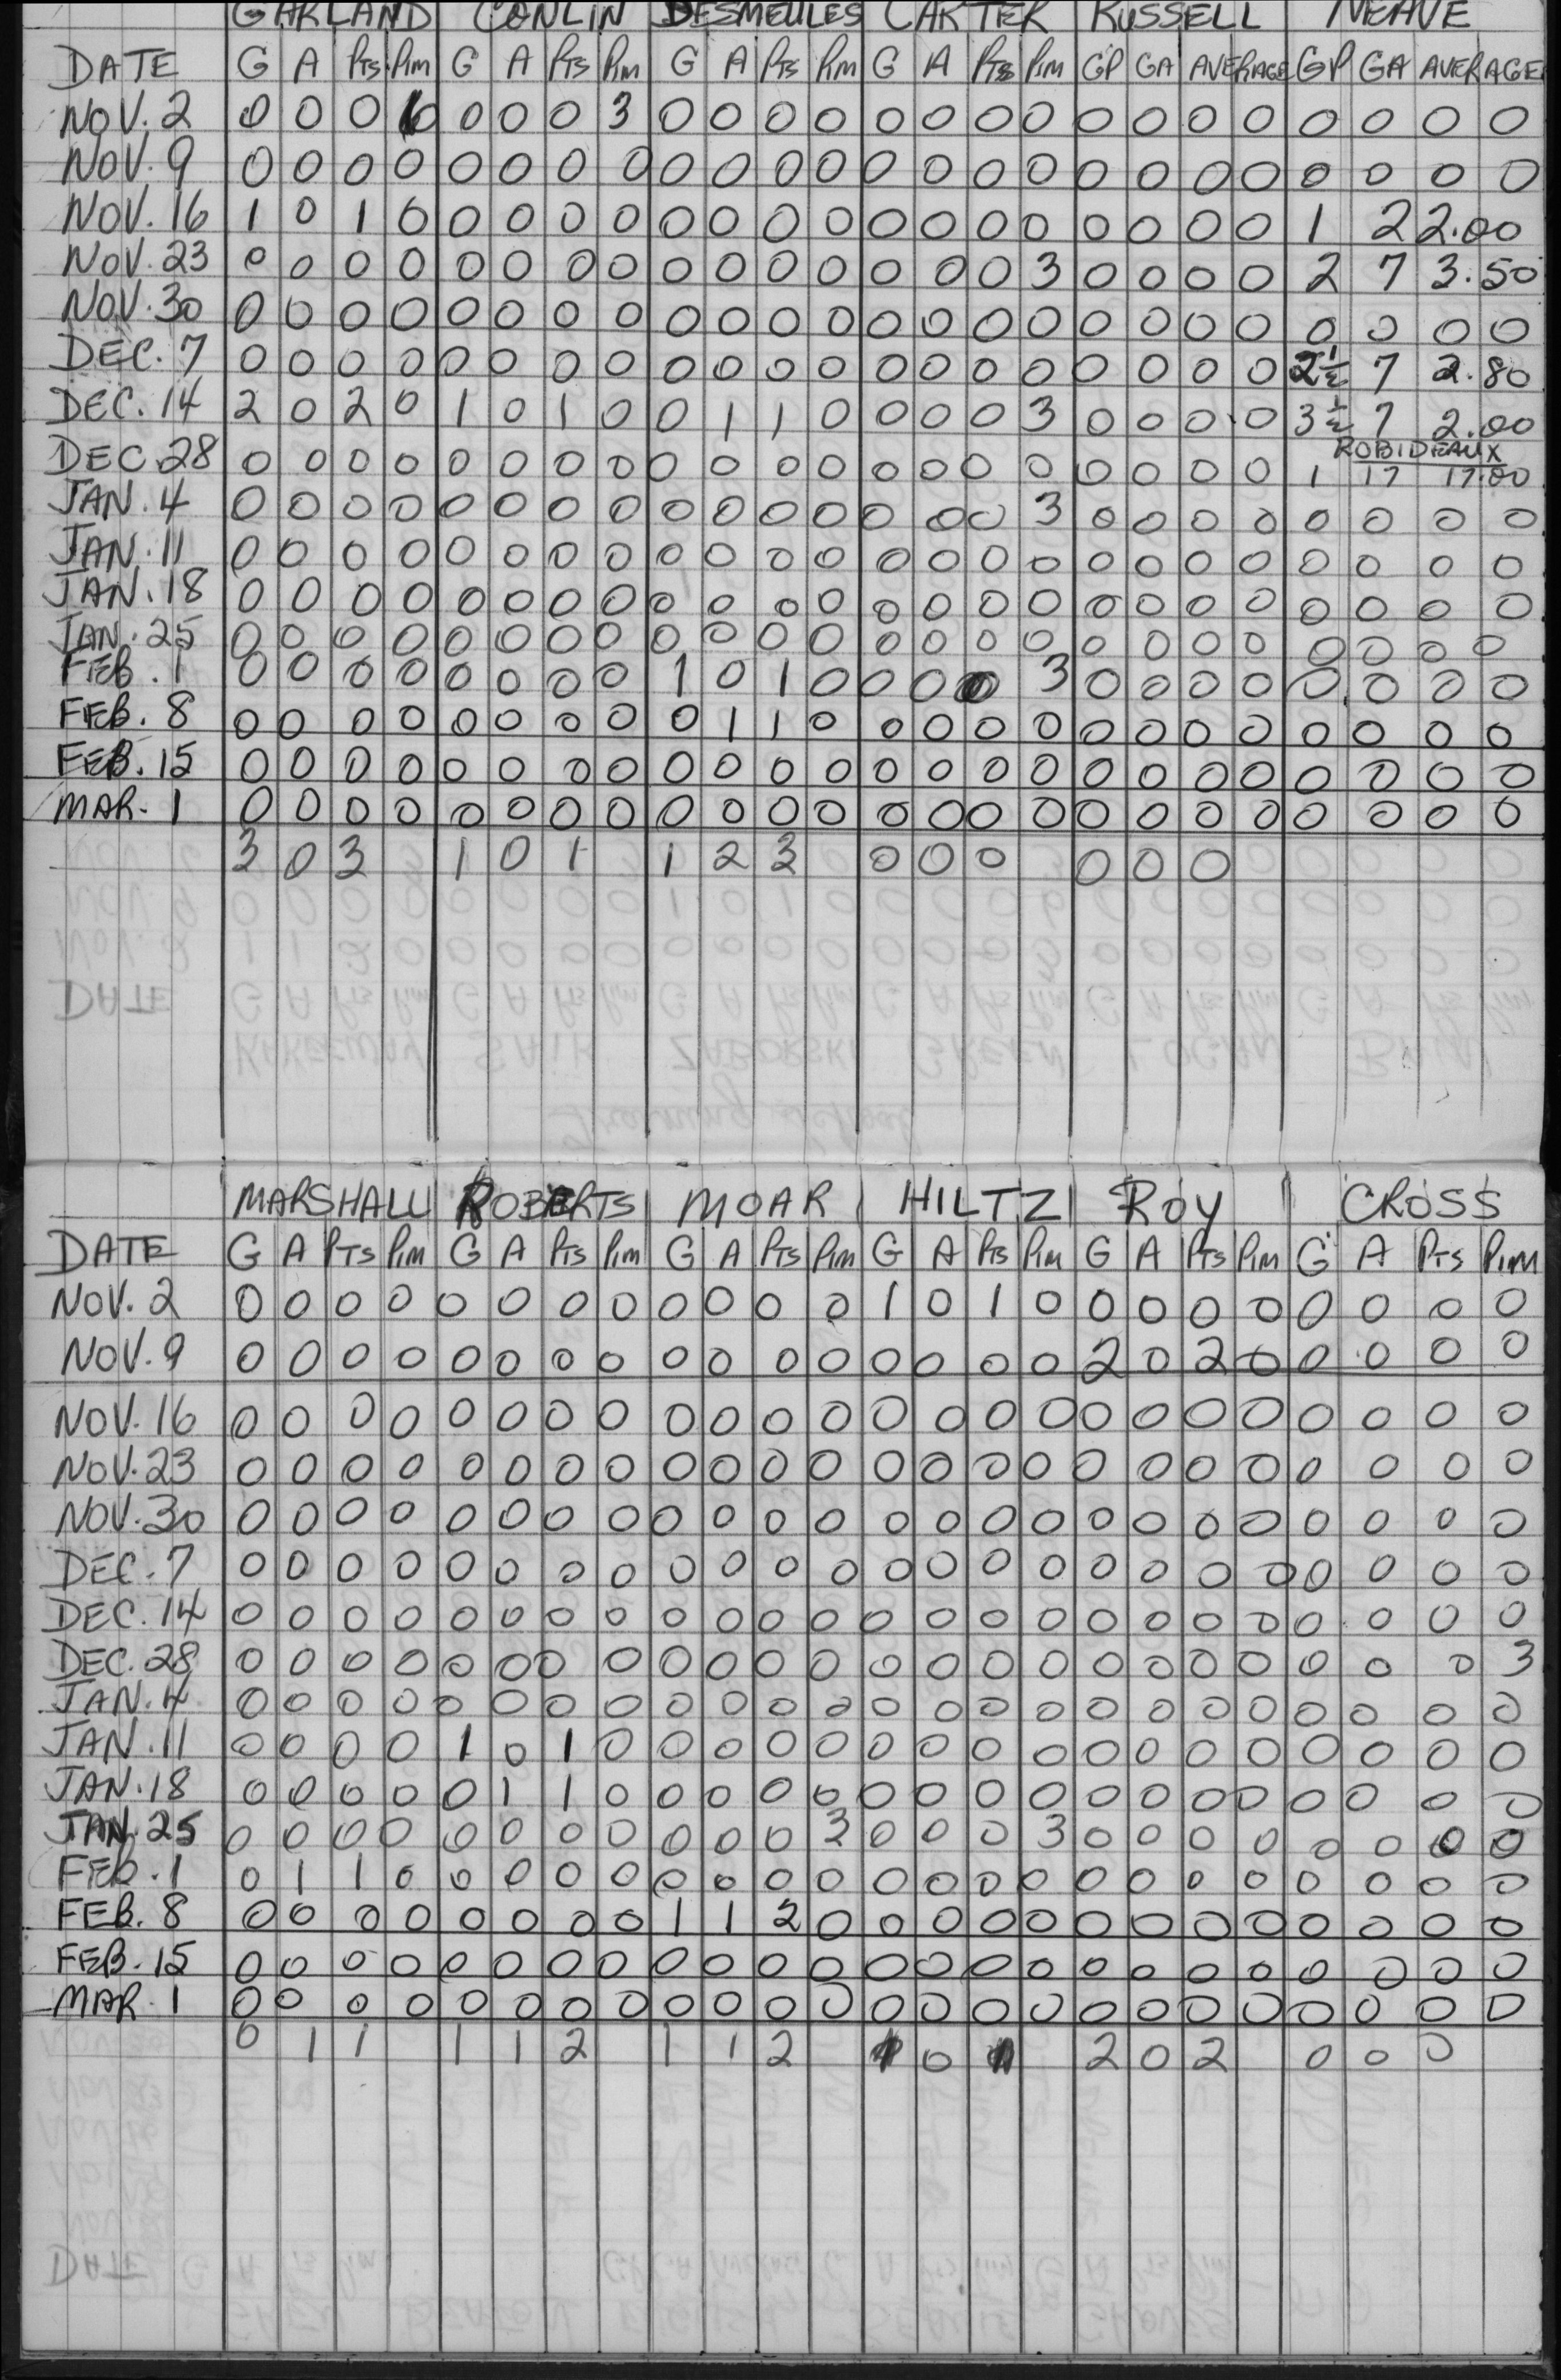 GARLAND CONLIN DESMEULES CARTER RUSSELL NEAVE
DATE G A Pts Pim G A Pts Pim G A Pts Pim G A Pts Pim GP GA AVERAGE GP GA AVERAGE
NOV. 2 0 0 0 0 0 0 3 0 0 0 0 0 0 0 0 0 0 0 0 0 0 0 0
NOV. 9 0 0 0 0 0 0 0 0 0 0 0 0 0 0 0 0 0 0 0 0 0 0 0 0
NOV. 16 1 0 1 0 0 0 0 0 0 0 0 0 0 0 0 0 0 0 0 0 1 2 2.00
NOV. 23 0 0 0 0 0 0 0 0 0 0 0 0 0 0 0 3 0 0 0 0 2 7 3.50
NOV. 30 0 0 0 0 0 0 0 0 0 0 0 0 0 0 0 0 0 0 0 0 0 0 0 0
DEC. 7 0 0 0 0 0 0 0 0 0 0 0 0 0 0 0 0 0 0 0 0 2½ 7 2.80
DEC. 14 2 0 2 0 1 0 1 0 0 1 1 0 0 0 0 3 0 0 0 0 3½ 7 2.00
ROBIDEAUX
DEC. 28 0 0 0 0 0 0 0 0 0 0 0 0 0 0 0 0 0 0 0 0 1 17 17.00
JAN. 4 0 0 0 0 0 0 0 0 0 0 0 0 0 0 0 3 0 0 0 0 0 0 0 0
JAN. 11 0 0 0 0 0 0 0 0 0 0 0 0 0 0 0 0 0 0 0 0 0 0 0 0
JAN. 18 0 0 0 0 0 0 0 0 0 0 0 0 0 0 0 0 0 0 0 0 0 0 0 0
JAN. 25 0 0 0 0 0 0 0 0 0 0 0 0 0 0 0 0 0 0 0 0 0 0 0 0
FEB. 1 0 0 0 0 0 0 0 0 1 0 1 0 0 0 0 3 0 0 0 0 0 0 0 0
FEB. 8 0 0 0 0 0 0 0 0 0 1 1 0 0 0 0 0 0 0 0 0 0 0 0 0
FEB. 15 0 0 0 0 0 0 0 0 0 0 0 0 0 0 0 0 0 0 0 0 0 0 0 0
MAR. 1 0 0 0 0 0 0 0 0 0 0 0 0 0 0 0 0 0 0 0 0 0 0 0 0
3 0 3 1 0 1 1 2 3 0 0 0 0 0 0
MARSHALL ROBERTS MOAR HILTZ ROY CROSS
DATE G A PTS Pim G A Pts Pim G A PTS Pim G A Pts Pim G A PTS Pim G A PTS PIM
NOV. 2 0 0 0 0 0 0 0 0 0 0 0 0 1 0 1 0 0 0 0 0 0 0 0 0
NOV. 9 0 0 0 0 0 0 0 0 0 0 0 0 0 0 0 0 2 0 2 0 0 0 0 0
NOV. 16 0 0 0 0 0 0 0 0 0 0 0 0 0 0 0 0 0 0 0 0 0 0 0 0
NOV. 23 0 0 0 0 0 0 0 0 0 0 0 0 0 0 0 0 0 0 0 0 0 0 0 0
NOV. 30 0 0 0 0 0 0 0 0 0 0 0 0 0 0 0 0 0 0 0 0 0 0 0 0
DEC. 7 0 0 0 0 0 0 0 0 0 0 0 0 0 0 0 0 0 0 0 0 0 0 0 0
DEC. 14 0 0 0 0 0 0 0 0 0 0 0 0 0 0 0 0 0 0 0 0 0 0 0 0
DEC. 28 0 0 0 0 0 0 0 0 0 0 0 0 0 0 0 0 0 0 0 0 0 0 0 3
JAN. 4 0 0 0 0 0 0 0 0 0 0 0 0 0 0 0 0 0 0 0 0 0 0 0 0
JAN. 11 0 0 0 0 1 0 1 0 0 0 0 0 0 0 0 0 0 0 0 0 0 0 0 0
JAN. 18 0 0 0 0 0 1 1 0 0 0 0 0 0 0 0 0 0 0 0 0 0 0 0 0
JAN. 25 0 0 0 0 0 0 0 0 0 0 0 3 0 0 0 3 0 0 0 0 0 0 0 0
FEB. 1 0 1 1 0 0 0 0 0 0 0 0 0 0 0 0 0 0 0 0 0 0 0 0 0
FEB. 8 0 0 0 0 0 0 0 0 1 1 2 0 0 0 0 0 0 0 0 0 0 0 0 0
FEB. 15 0 0 0 0 0 0 0 0 0 0 0 0 0 0 0 0 0 0 0 0 0 0 0 0
MAR. 1 0 0 0 0 0 0 0 0 0 0 0 0 0 0 0 0 0 0 0 0 0 0 0 0
0 1 1 1 1 2 1 1 2 1 0 1 2 0 2 0 0 0